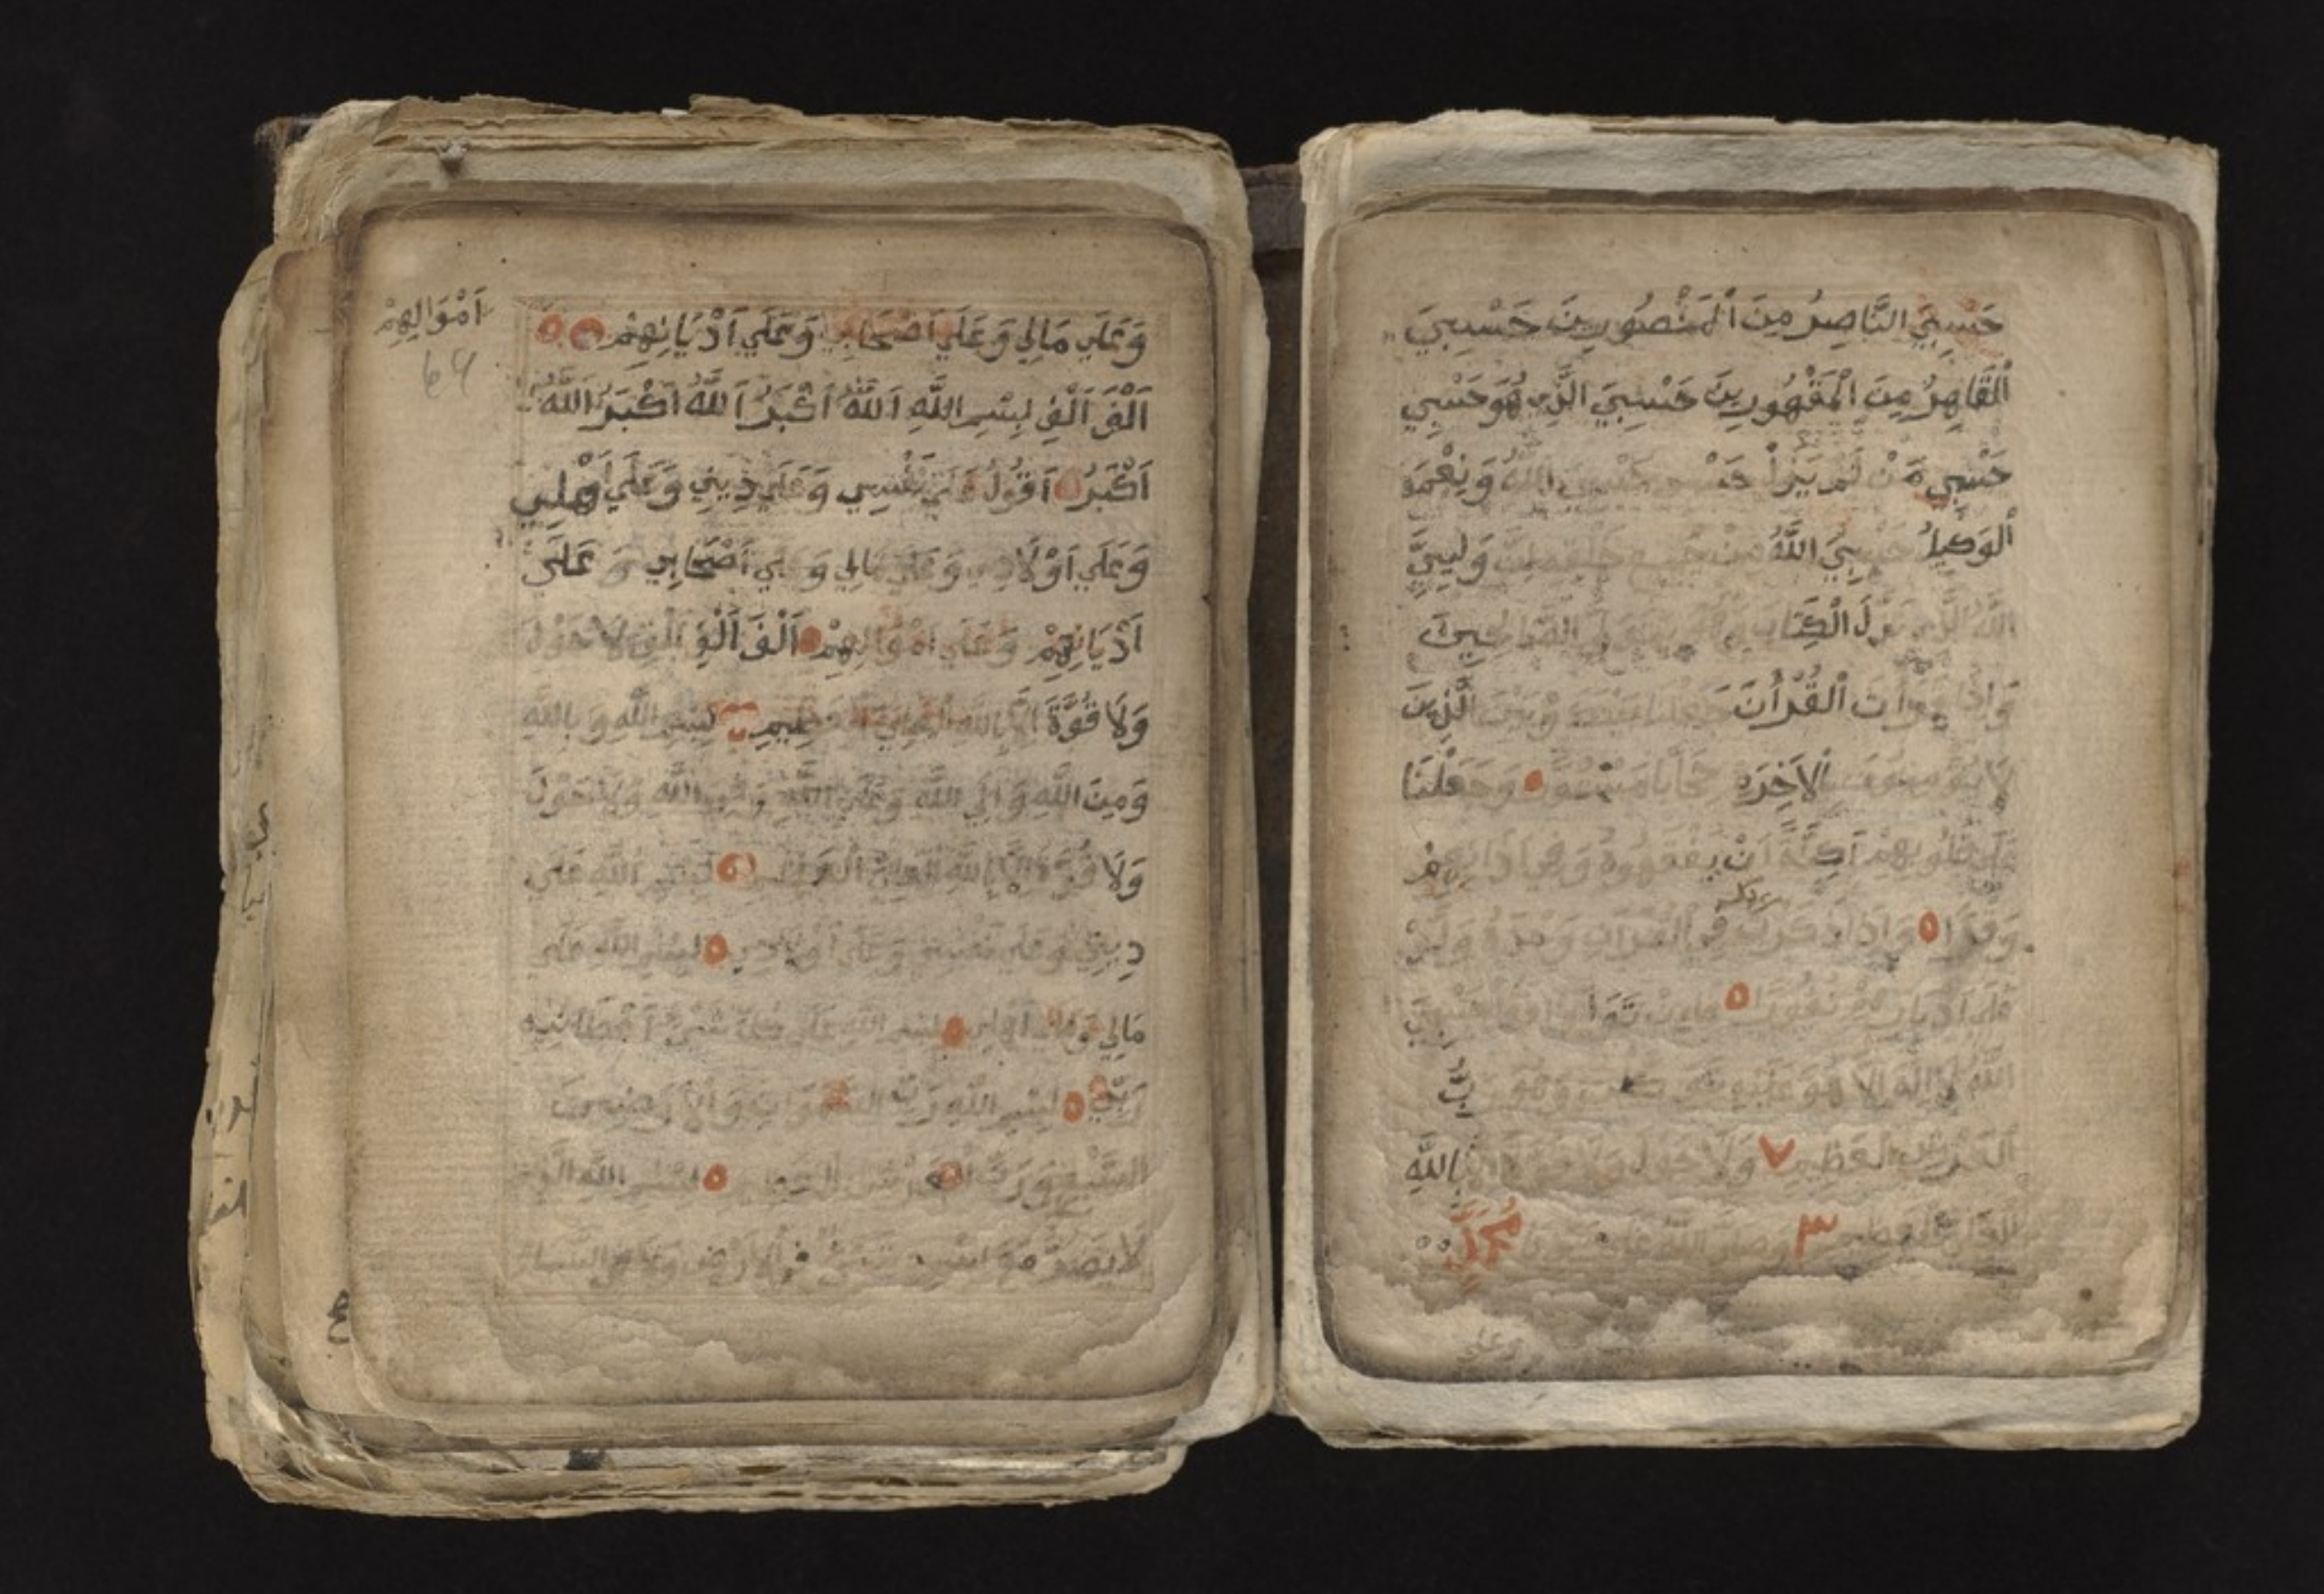 حَسْبِيَ النَّاصِرُ مِنَ الْمَنْصُورِينَ حَسْبِيَ
الْقَاهِرُ مِنَ الْمَقْهُورِينَ حَسْبِيَ الَّذِي هُوَ حَسْبِي
حَسْبِي مَنْ لَمْ يَزَلْ حَسْبِي حَسْبِيَ اللهُ وَنِعْمَ
الْوَكِيلُ حَسْبِيَ اللَّهُ مِنْ جَمِيعِ خَلْقِهِ وَلِيِّيَ
اللَّهُ الَّذِي نَزَّلَ الْكِتَابَ وَهُوَ يَتَوَلَّى الصَّالِحِينَ
وَاِذَا قَرَأْتَ الْقُرْاٰنَ جَعَلْنَا بَيْنَكَ وَبَيْنَ الَّذِينَ
لَا يُؤْمِنُونَ بِالْاَخِرَةِ حِجَابًا مَسْتُورًا وَجَعَلْنَا
عَلَى قُلُوبِهِمْ اَكِنَّةً اَنْ يَفْقَهُوهُ وَفِي اٰذَانِهِمْ
ربك
وَقْرًا وَاِذَا ذَكَرْتَ فِي الْقُرْاٰنِ وَحْدَهُ وَلَّوْا
عَلَى اَدْبَارِهِمْ نُفُورًا فَاِنْ تَوَلَّوْا فَقُلْ حَسْبِيَ
اللَّهُ لَا اِلٰهَ اِلَّا هُوَ عَلَيْهِ تَوَكَّلْتُ وَهُوَ رَبُّ
الْعَرْشِ الْعَظِيمِ ٧ وَلَا حَوْلَ وَلَا قُوَّةَ اِلَّا بِاللَّهِ
الْعَلِيِّ الْعَظِيمِ ٣ وَصَلَّى اللَّهُ عَلَى سَيِّدِنَا مُحَمَّدٍ
وعلى
وَعَلَى مَالِي وَعَلَى اَصْحَابِي وَعَلَى اَدْيَانِهِمْ
اَمْوَالِهِمْ
64
اَلْفَ اَلْفِ بِسْمِ اللَّهِ اَللهُ اَكْبَرُ اَللهُ اَكْبَرُ اَللهُ
اَكْبَرُ اَقُولُ عَلَى نَفْسِي وَعَلَى دِينِي وَعَلَى اَهْلِي
وَعَلَى اَوْلَادِي وَعَلَى مَالِي وَعَلَى اَصْحَابِي وَعَلَى
اَدْيَانِهِمْ وَعَلَى اَمْوَالِهِمْ اَلْفَ اَلْفِ اَلْفِ لَا حَوْلَ
وَلَا قُوَّةَ اِلَّا بِاللَّهِ الْعَلِيِّ الْعَظِيمِ بِسْمِ اللَّهِ وَبِاللَّهِ
وَمِنَ اللَّهِ وَاِلَى اللَّهِ وَعَلَى اللَّهِ وَفِي اللَّهِ وَلَا حَوْلَ
وَلَا قُوَّةَ اِلَّا بِاللَّهِ الْعَلِيِّ الْعَظِيمِ بِسْمِ اللَّهِ عَلَى
دِينِي وَعَلَى نَفْسِي وَعَلَى اَوْلَادِي بِسْمِ اللَّهِ عَلَى
مَالِي وَعَلَى اَهْلِي بِسْمِ اللَّهِ عَلَى كُلِّ شَيْءٍ اَعْطَانِيهِ
رَبِّي بِسْمِ اللَّهِ رَبِّ السَّمَوَاتِ وَالْاَرَضِينَ
السَّبْعِ وَرَبِّ الْعَرْشِ الْعَظِيمِ بِسْمِ اللَّهِ الَّذِي
لَا يَضُرُّ مَعَ اسْمِهِ شَيْءٌ فِي الْاَرْضِ وَلَا فِي السَّمَاءِ